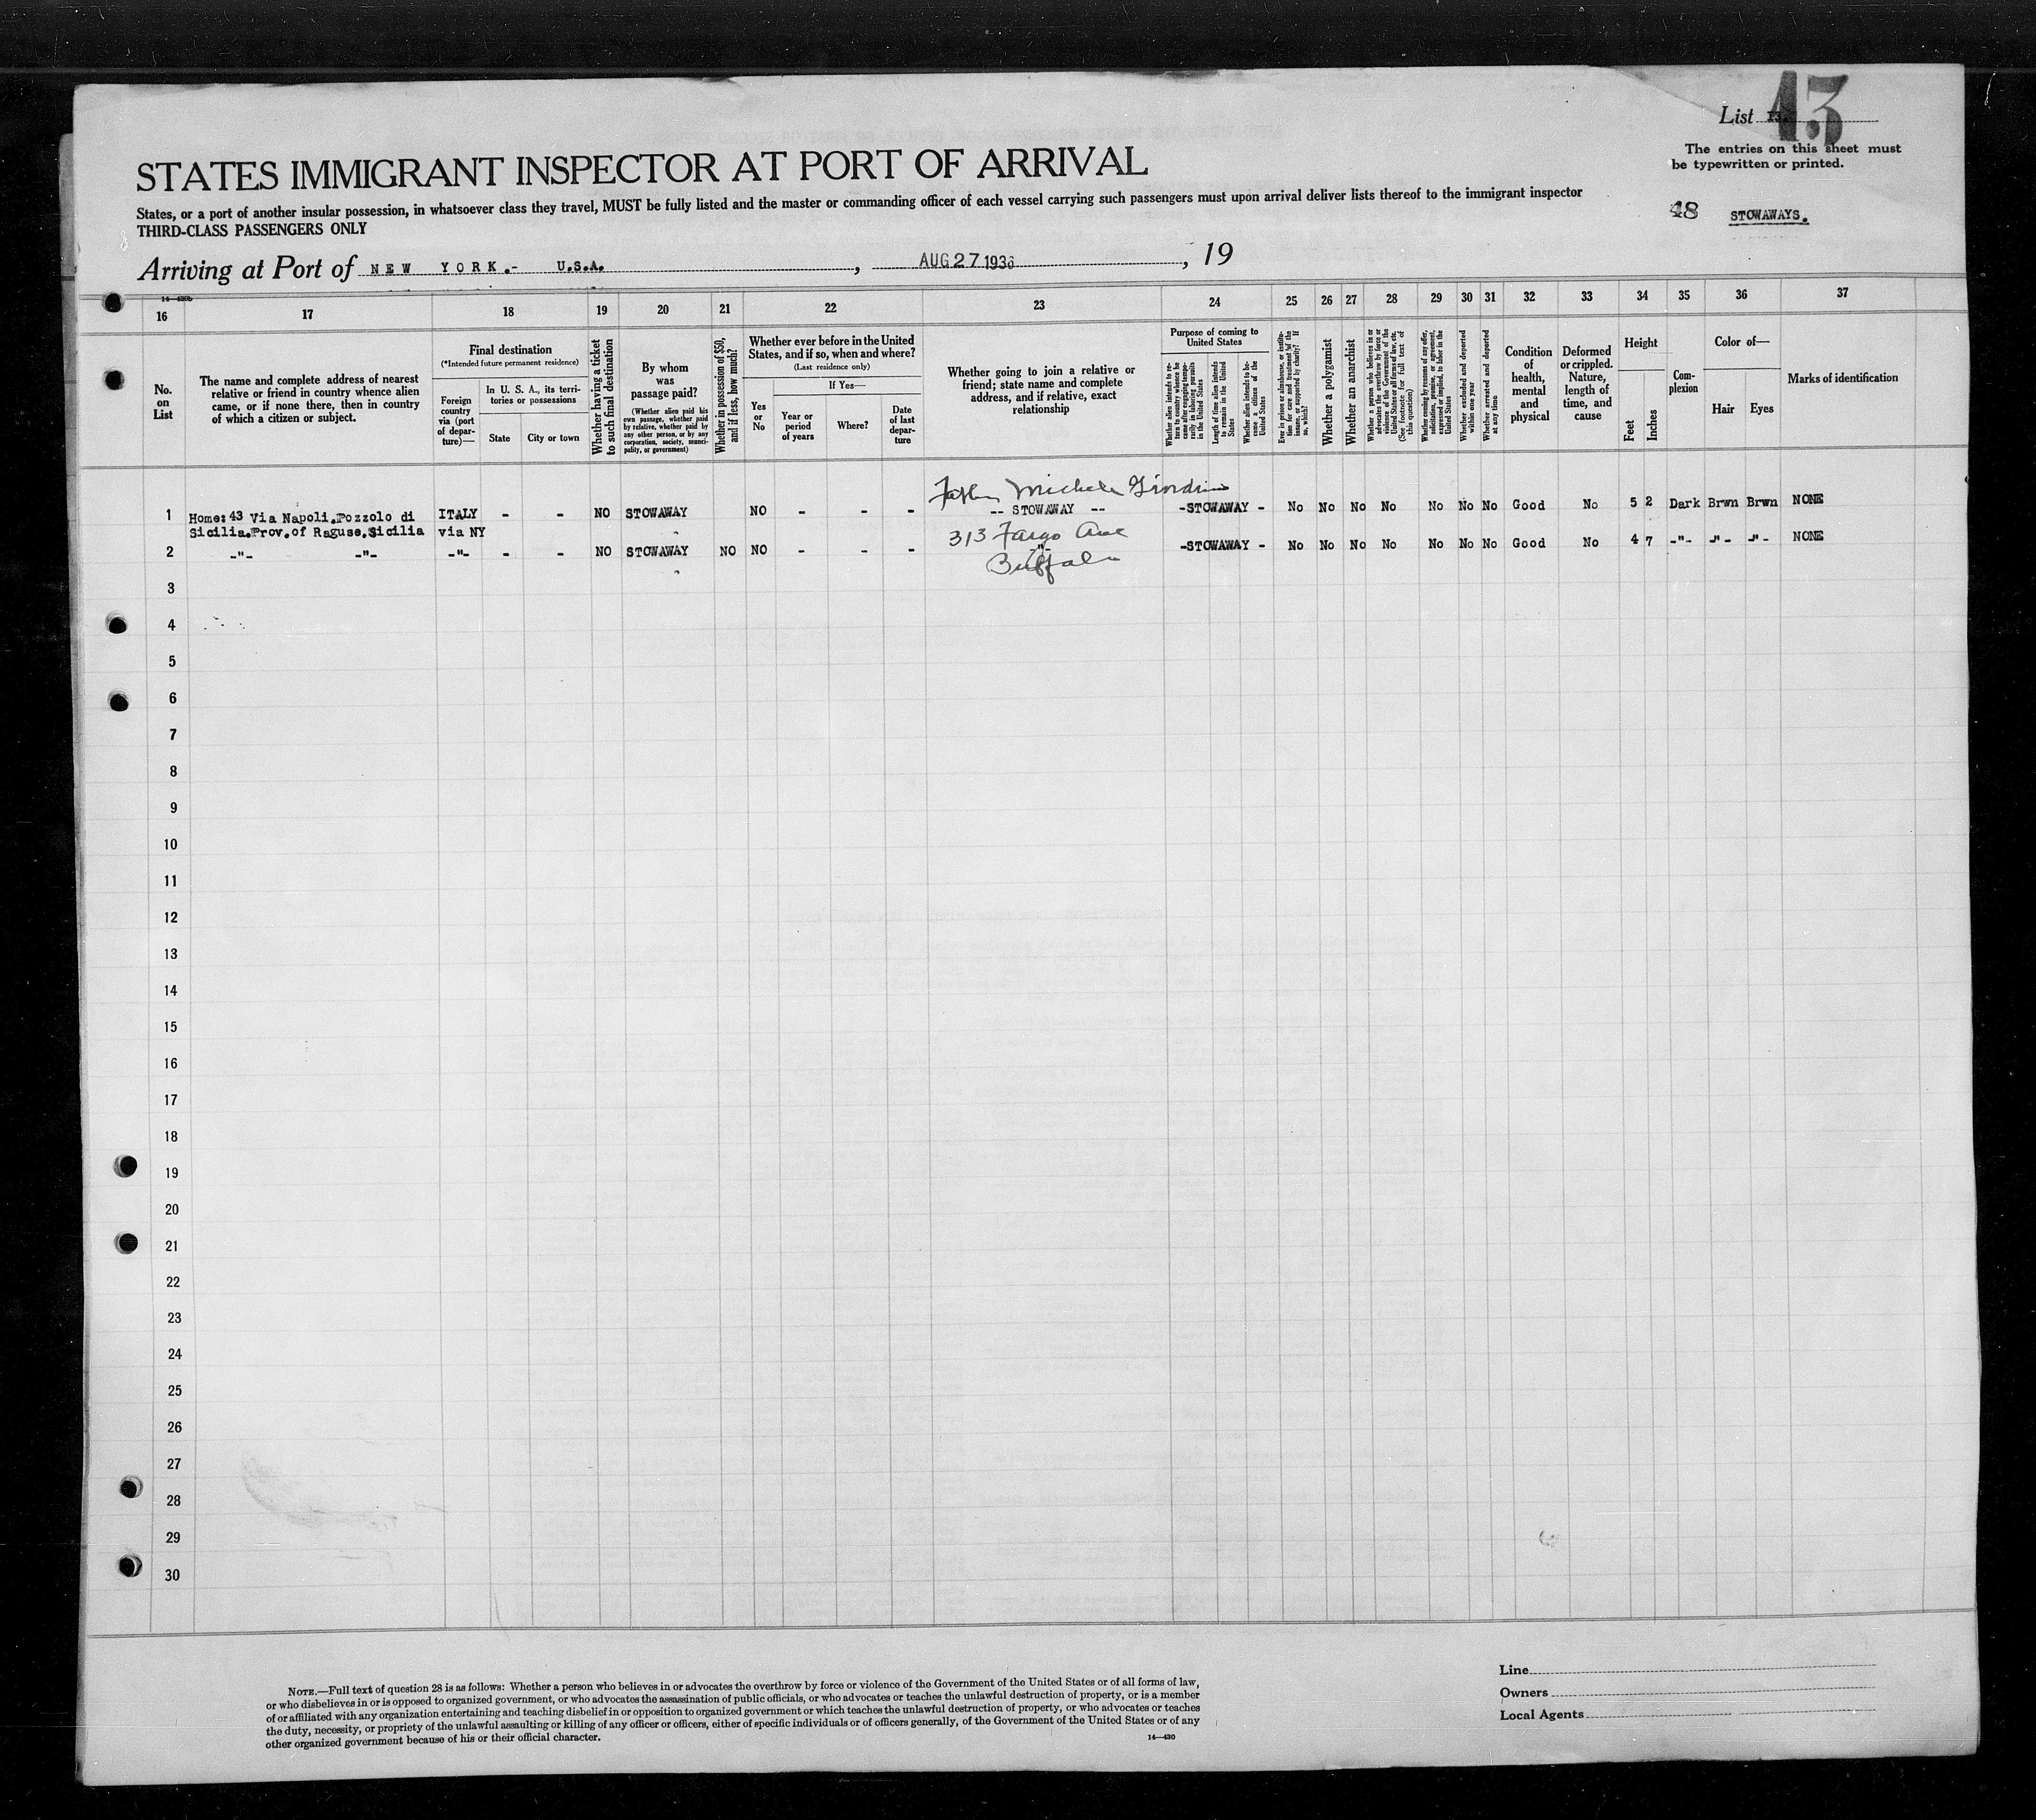 List 43
The entries on this sheet must
be typewritten or printed.
STATES IMMIGRANT INSPECTOR AT PORT OF ARRIVAL
States, or a port of another insular possession, in whatsoever class they travel, MUST be fully listed and the master or commanding officer of each vessel carrying such passengers must upon arrival deliver lists thereof to the immigrant inspector
THIRD-CLASS PASSENGERS ONLY
48 STOWAWAYS.
Arriving at Port of NEW YORK.- U.S.A. , AUG 27 1936 , 19
14—430b
16 17 18 19 20 21 22 23 24 25 26 27 28 29 30 31 32 33 34 35 36 37
No.
on
List
The name and complete address of nearest
relative or friend in country whence alien
came, or if none there, then in country
of which a citizen or subject.
Final destination
(*Intended future permanent residence)
Foreign
country
via (port
of depar-
ture)—
In U. S. A., its terri-
tories or possessions
State
City or town
Whether having a ticket
to such final destination
By whom
was
passage paid?
(Whether alien paid his
own passage, whether paid
by relative, whether paid by
any other person, or by any
corporation, society, munici-
pality, or government)
Whether in possession of $50,
and if less, how much?
Whether ever before in the United
States, and if so, when and where?
(Last residence only)
Yes
or
No
If Yes—
Year or
period
of years
Where?
Date
of last
depar-
ture
Whether going to join a relative or
friend; state name and complete
address, and if relative, exact
relationship
Purpose of coming to
United States
Whether alien intends to re-
turn to country whence he
came after engaging tempo-
rarily in laboring pursuits
in the United States
Length of time alien intends
to remain in the United
States
Whether alien intends to be-
come a citizen of the
United States
Ever in prison or almshouse, or institu-
tion for care and treatment of the
insane, or supported by charity? If
so, which?
Whether a polygamist
Whether an anarchist
Whether a person who believes in or
advocates the overthrow by force or
violence of the Government of the
United States or all forms of law, etc.
(See footnote for full text of
this question)
Whether coming by reasons of any offer,
solicitation, promise, or agreement,
expressed or implied, to labor in the
United States
Whether excluded and deported
within one year
Whether arrested and deported
at any time
Condition
of
health,
mental
and
physical
Deformed
or crippled.
Nature,
length of
time, and
cause
Height
Feet
Inches
Com-
plexion
Color of—
Hair
Eyes
Marks of identification
Father Michele
1 Home: 43 Via Napoli.Pozzolo di ITALY - - NO STOWAWAY NO - - - -- STOWAWAY -- -STOWAWAY - No No No No No No No Good No 5 2 Dark Brwn Brwn NONE
Sicilia.Prov.of Raguse.Sicilia via NY
313 Fargo Ave
2 -"- -"- -"- - - NO STOWAWAY NO NO - - - -"- -STOWAWAY - No No No No No No No Good No 4 7 -"- -"- -"- NONE
Buffalo
3
4
5
6
7
8
9
10
11
12
13
14
15
16
17
18
19
20
21
22
23
24
25
26
27
28
29
30
NOTE.—Full text of question 28 is as follows: Whether a person who believes in or advocates the overthrow by force or violence of the Government of the United States or of all forms of law,
or who disbelieves in or is opposed to organized government, or who advocates the assassination of public officials, or who advocates or teaches the unlawful destruction of property, or is a member
of or affiliated with any organization entertaining and teaching disbelief in or opposition to organized government or which teaches the unlawful destruction of property, or who advocates or teaches
the duty, necessity, or propriety of the unlawful assaulting or killing of any officer or officers, either of specific individuals or of officers generally, of the Government of the United States or of any
other organized government because of his or their official character.
14—430
Line
Owners
Local Agents